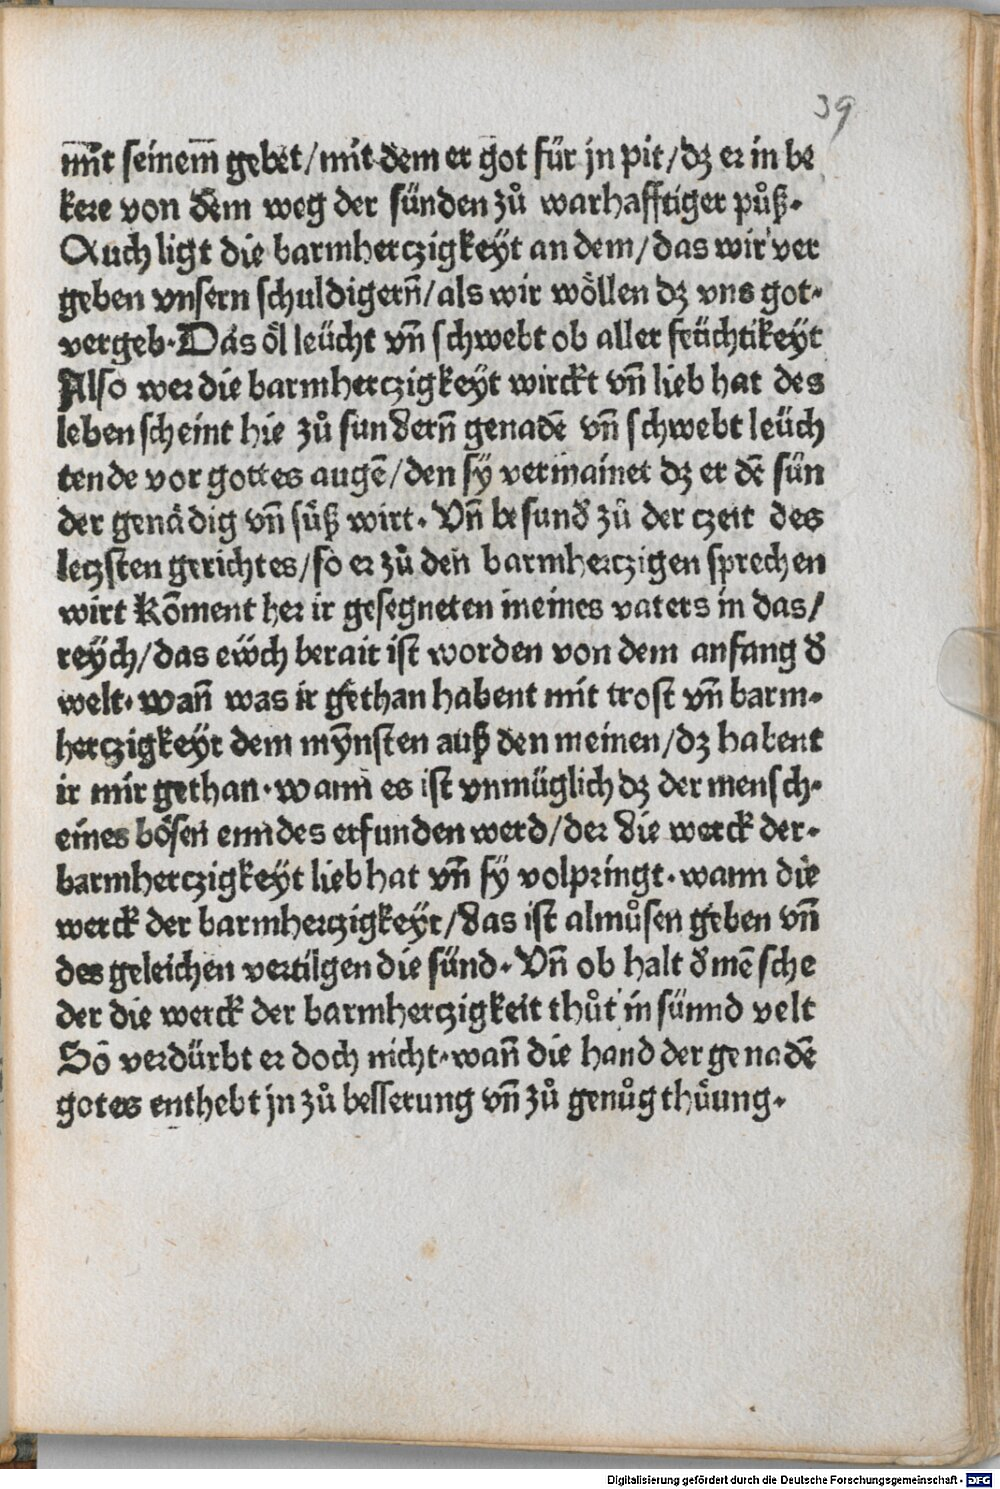 39
mit seinem gebet/mit dem er got für jn pit/dz er in be
kere von dem weg der sünden zů warhafftiger půß.
Auch ligt die barmherczigkeÿt an dem/das wir ver
geben vnsern schuldigern̄/als wir wöllen dz vns got.
vergeb.Das öl leücht vn̄ schwebt ob aller feüchtikeÿt
Also wer die barmherczigkeÿt wirckt vn̄ lieb hat des
leben scheint hie zů sundern̄ genadē vn̄ schwebt leüch
tende vor gottes augē/den sÿ vermainet dz er dē sün
der genädig vn̄ süß wirt. Vn̄ besund̄ zů der czeit des
leczsten gerichtes/so er zů den barmherczigen sprechen
wirt Kōment her ir gesegneten meines vaters in das/
reÿch/das eẅch berait ist worden von dem anfang d̄
welt.wan̄ was ir gethan habent mit trost vn̄ barm.
herczigkeÿt dem mÿnsten auß den meinen/dz habent
ir mir gethan.wann es ist vnmüglich dz der mensch.
eines bösen enndes erfunden werd/der die werck der.
barmherczigkeÿt lieb hat vn̄ sÿ volpringt.wann die
werck der barmherczigkeÿt/das ist almůsen geben vn̄
des geleichen vertilgen die sünd. Vn̄ ob halt d̄ mēsche
der die werck der barmherczigkeit thůt in sünnd velt
So verdürbt er doch nicht.wan̄ die hand der genadē
gotes enthebt jn zů besserung vn̄ zů genůgthüung.
Digitalisierung gefördert durch die Deutsche Forschungsgemeinschaft - DFG